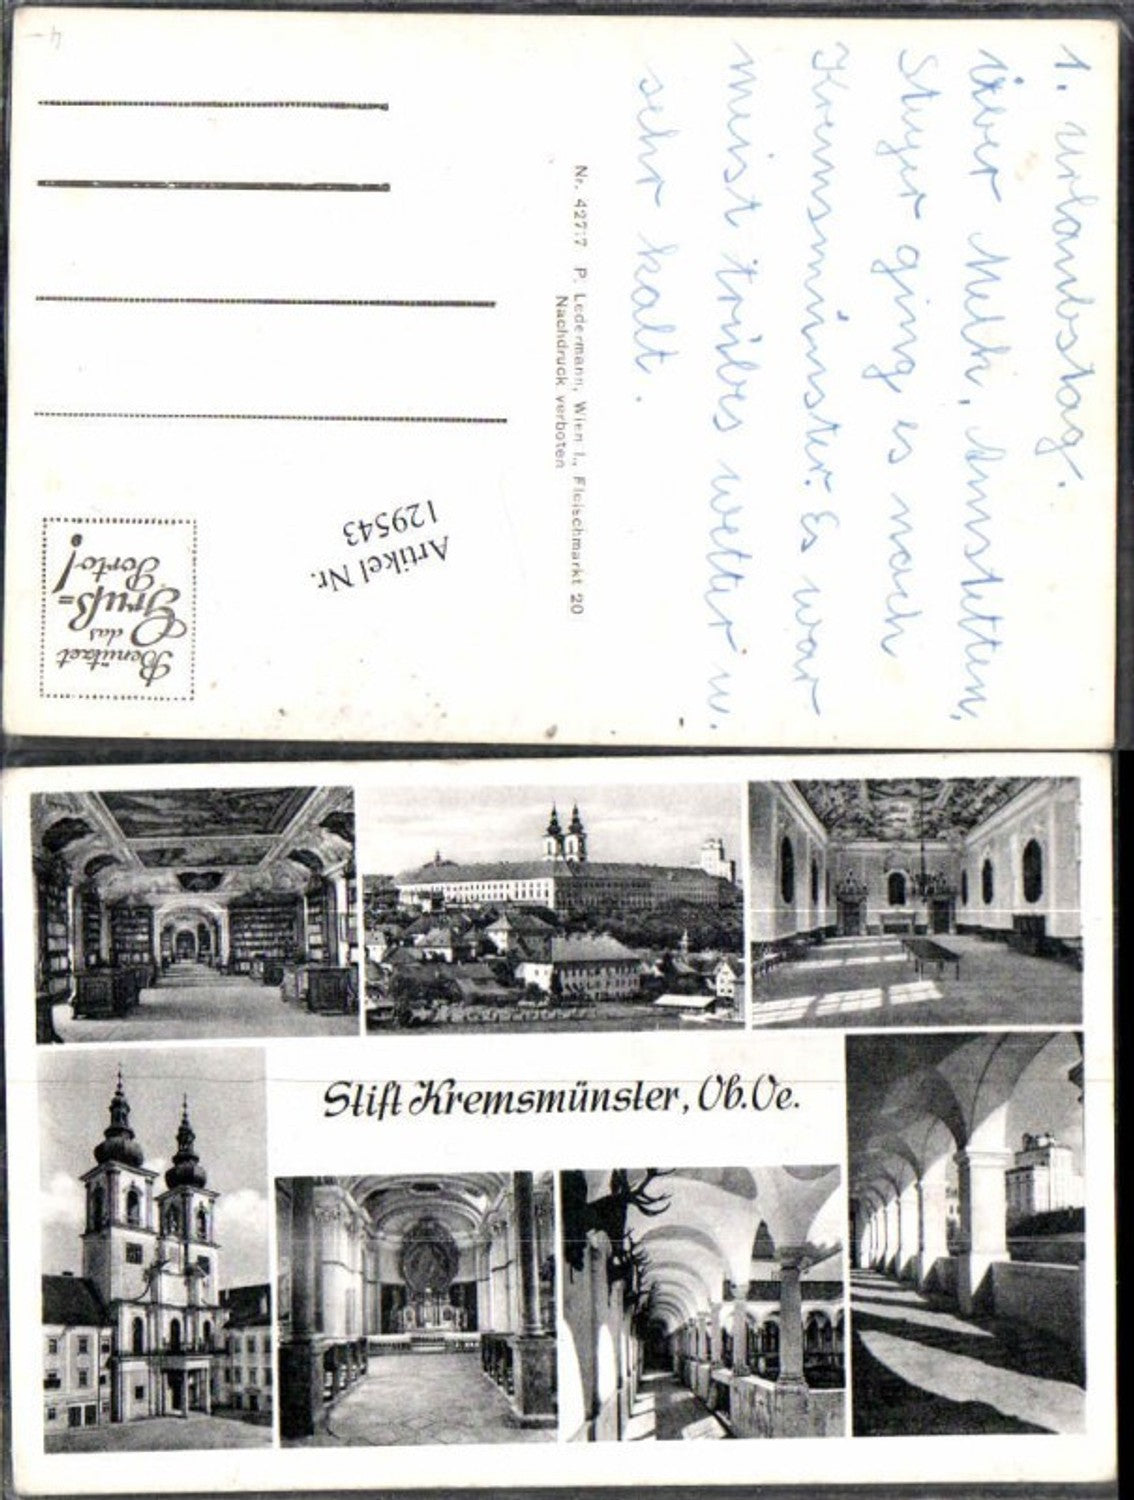 1. Urlaubstag.
Über Melk, Amstetten,
Steyer ging es nach
Kremsmünster. Es war
meist trübes wetter u.
sehr kalt.
Nr. 42717 P. Ledermann, Wien I., Fleischmarkt 20
Nachdruck verboten
Artikel Nr.
129543
Benützet
das
Gruß=
Porto!
4-
Stift Kremsmünster, Ob. Oe.